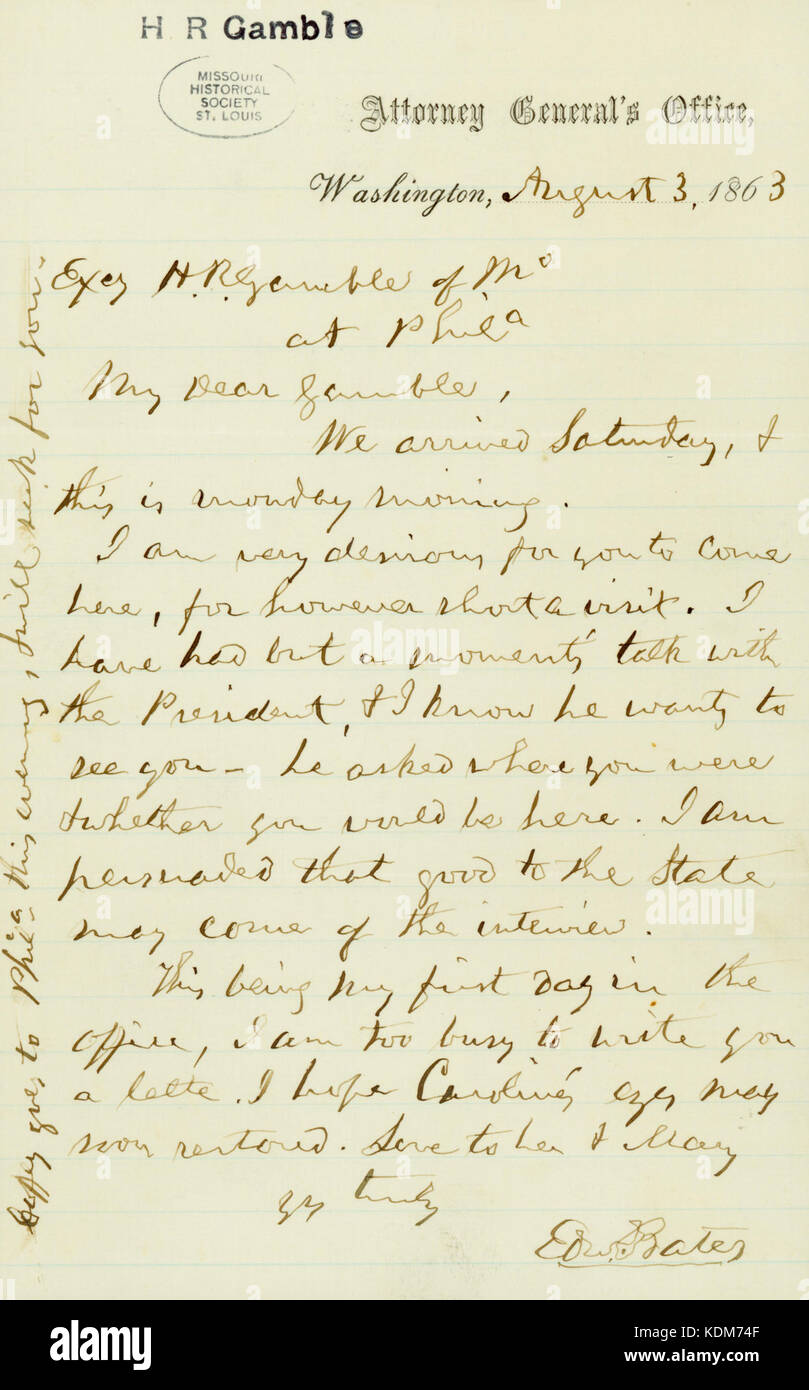 H R Gamble
MISSOURI
HISTORICAL
SOCIETY
ST. LOUIS
Attorney General's Office,
Washington, August 3, 1863
Excy H. R. Gamble of Mo
at Phila
My Dear Gamble,
We arrived Saturday, &
this is monday morning.
I am very desirous for you to come
here, for however short a visit. I
have had but a moment's talk with
the President, & I know he wants to
see you – he asked where you were
& whether you would be here. I am
persuaded that good to the State
may come of the interview.
This being my first day in the
office, I am too busy to write you
a lette. I hope Caroline's eyes may
soon restored. Love to her & Mary
yr truly
Edw. Bates
goes to Phila this evening, & will seek for you –
alamy
alamy
alamy
alamy
alamy
Image ID: KDM74F
www.alamy.com